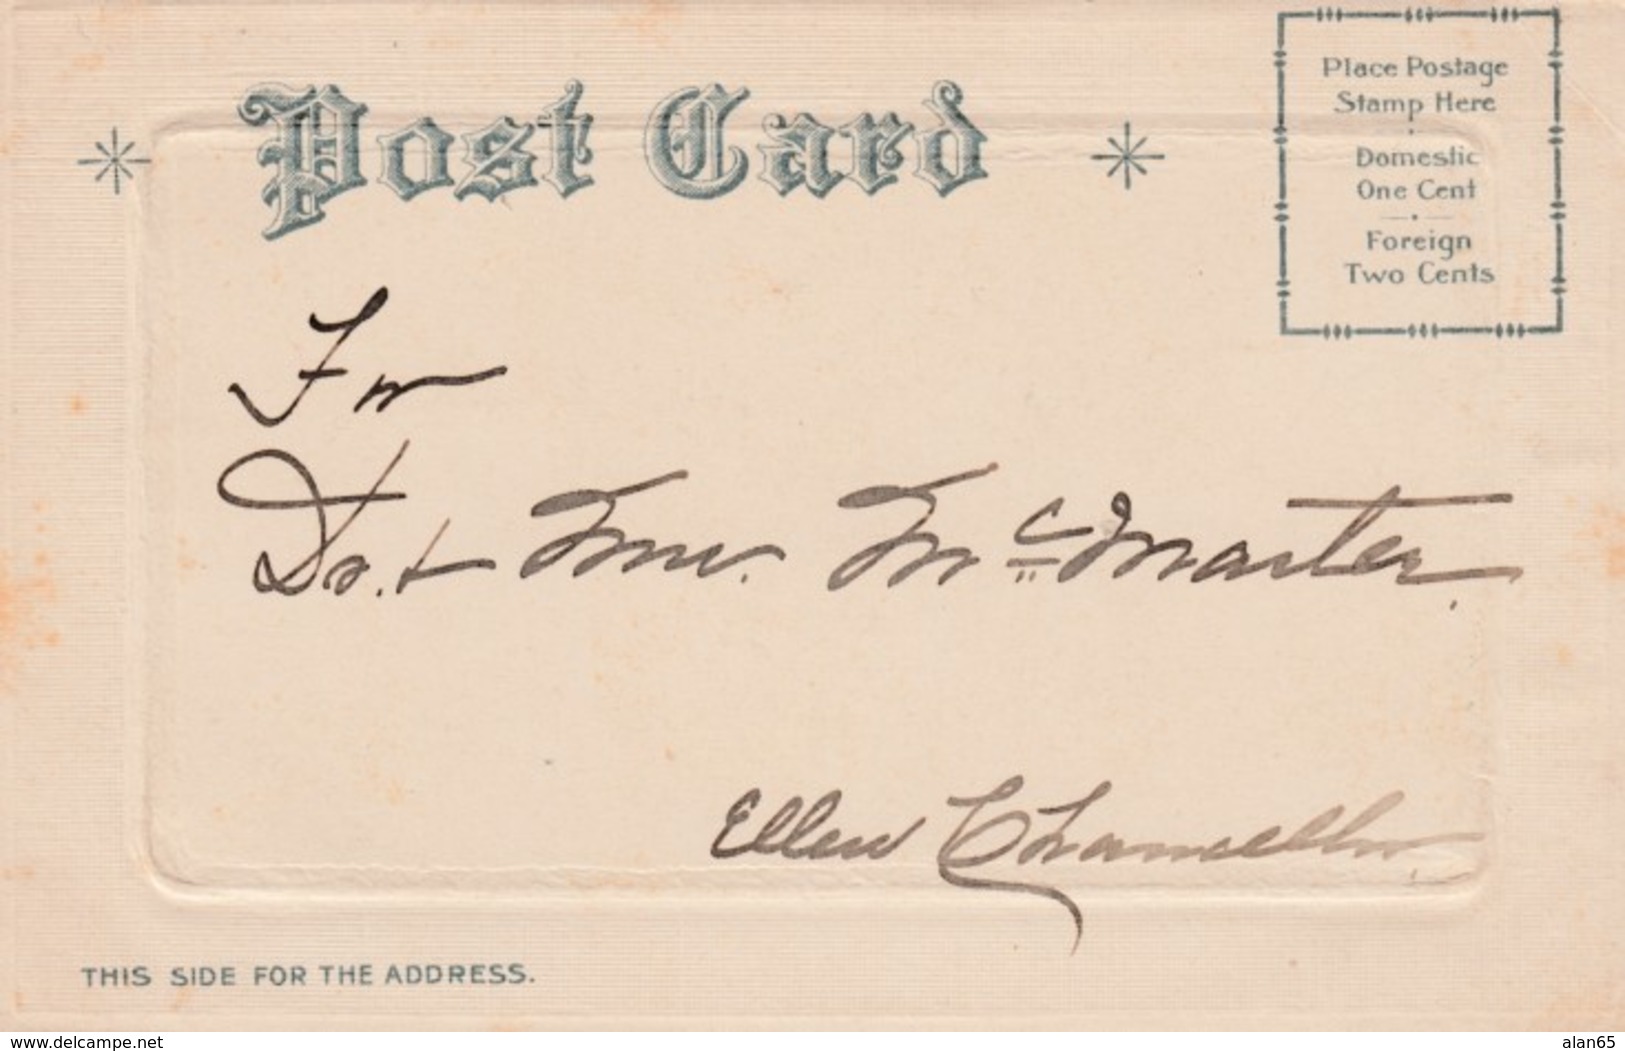 Post Card
Place Postage
Stamp Here
Domestic
One Cent
Foreign
Two Cents
For
Dr. + Mrs. McMaster.
Ellen Chancellor.
THIS SIDE FOR THE ADDRESS.
www.delcampe.net
alan65